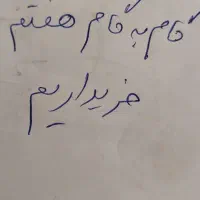 گام به گام هفتم
خریداریم